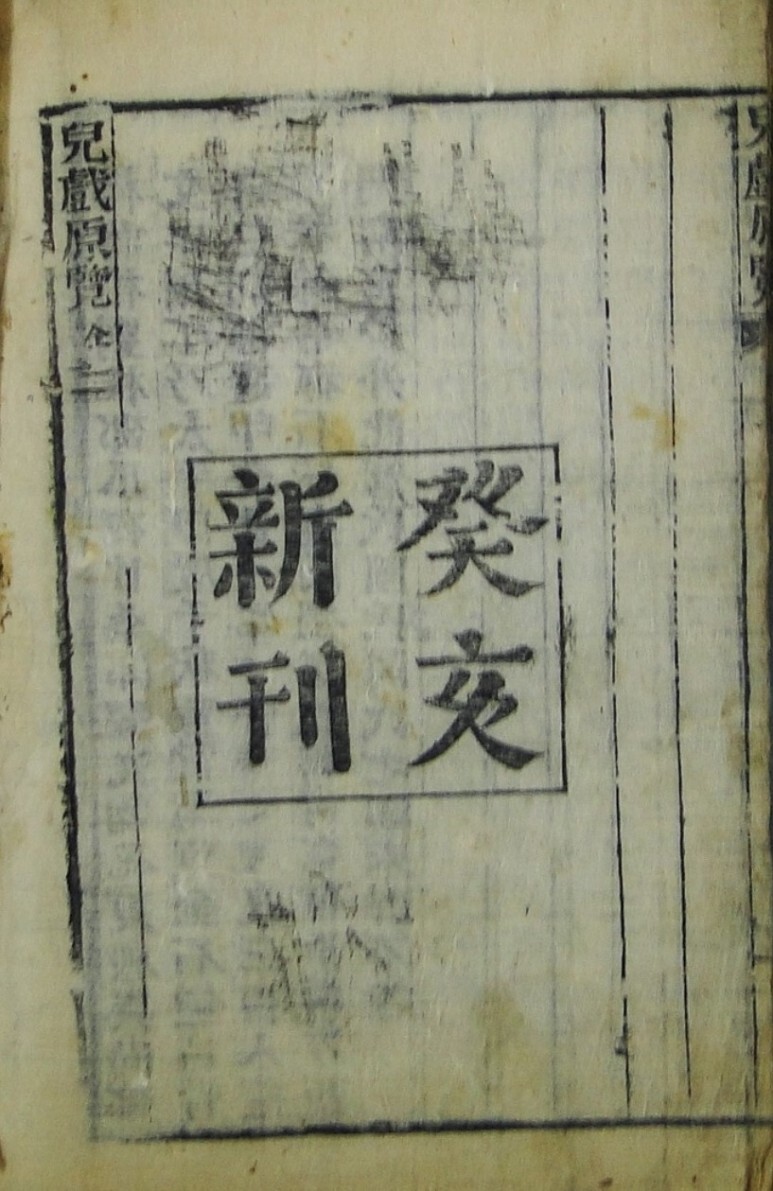 兒戲原覽
癸亥
新刊
兒戲原覽 全